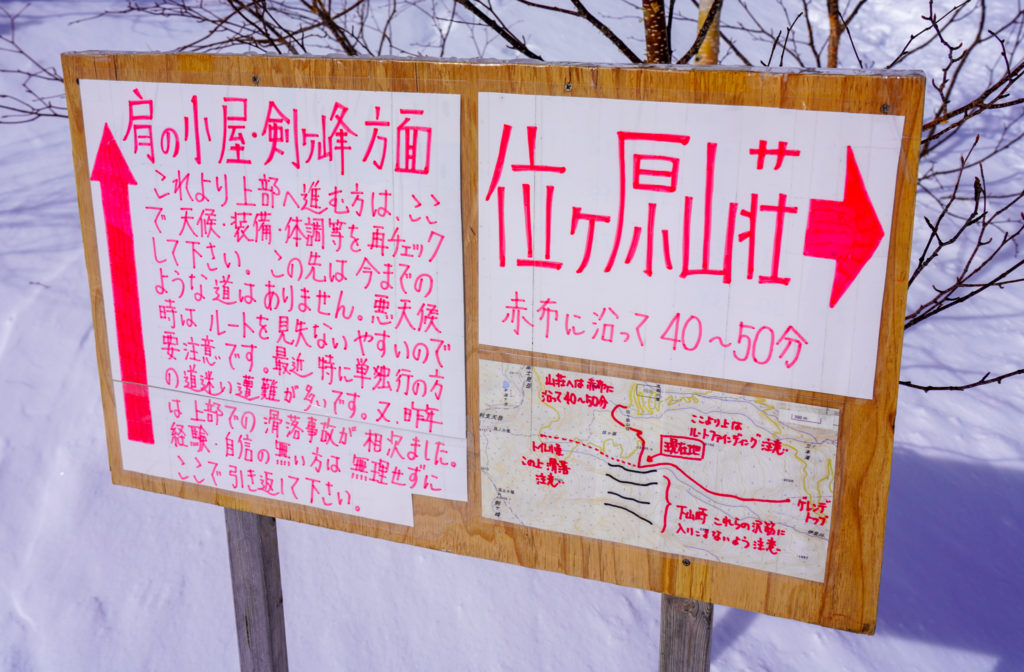 肩の小屋・剣ヶ峰方面
これより上部へ進む方は、ここ
で天候・装備・体調等を再チェック
して下さい。この先は今までの
ような道はありません。悪天候
時はルートを見失ないやすいので
要注意です。最近特に単独行の方
の道迷い遭難が多いです。又、昨年
は上部での滑落事故が相次ました。
経験・自信の無い方は無理せずに
ここで引き返して下さい。
位ヶ原山荘
赤布に沿って40〜50分
山荘へは赤布に
沿って40〜50分
ここより上は
ルートファインディング注意
現在地
この上滑落
注意
ゲレンデ
トップ
下山時 これらの沢筋に
入りこまないよう注意